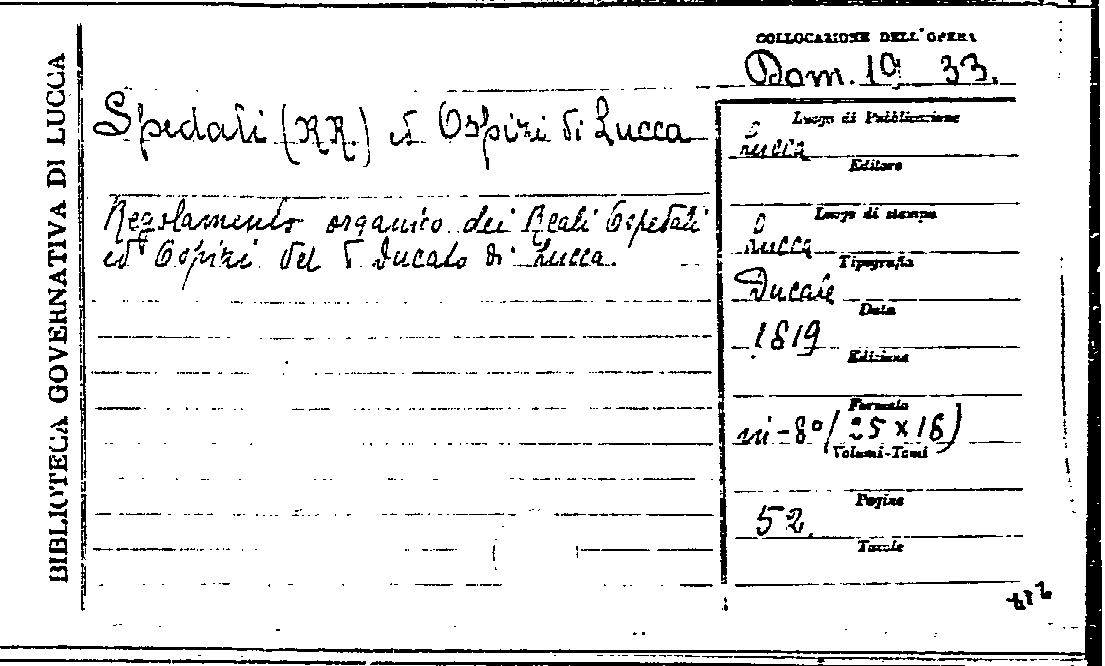 BIBLIOTECA GOVERNATIVA DI LUCCA
COLLOCAZIONE DELL'OPERA
Dom. 19 33.
Spedali (RR.) ed Ospizi di Lucca
Regolamento organico dei Reali Ospedali
ed Ospizi del Ducato di Lucca.
Luogo di Pubblicazione
Lucca
Editore
Luogo di stampa
Lucca
Tipografia
Ducale
Data
1819
Edizione
Formato
in-8° (25 x 18)
Volumi-Tomi
Pagine
52.
Tavole